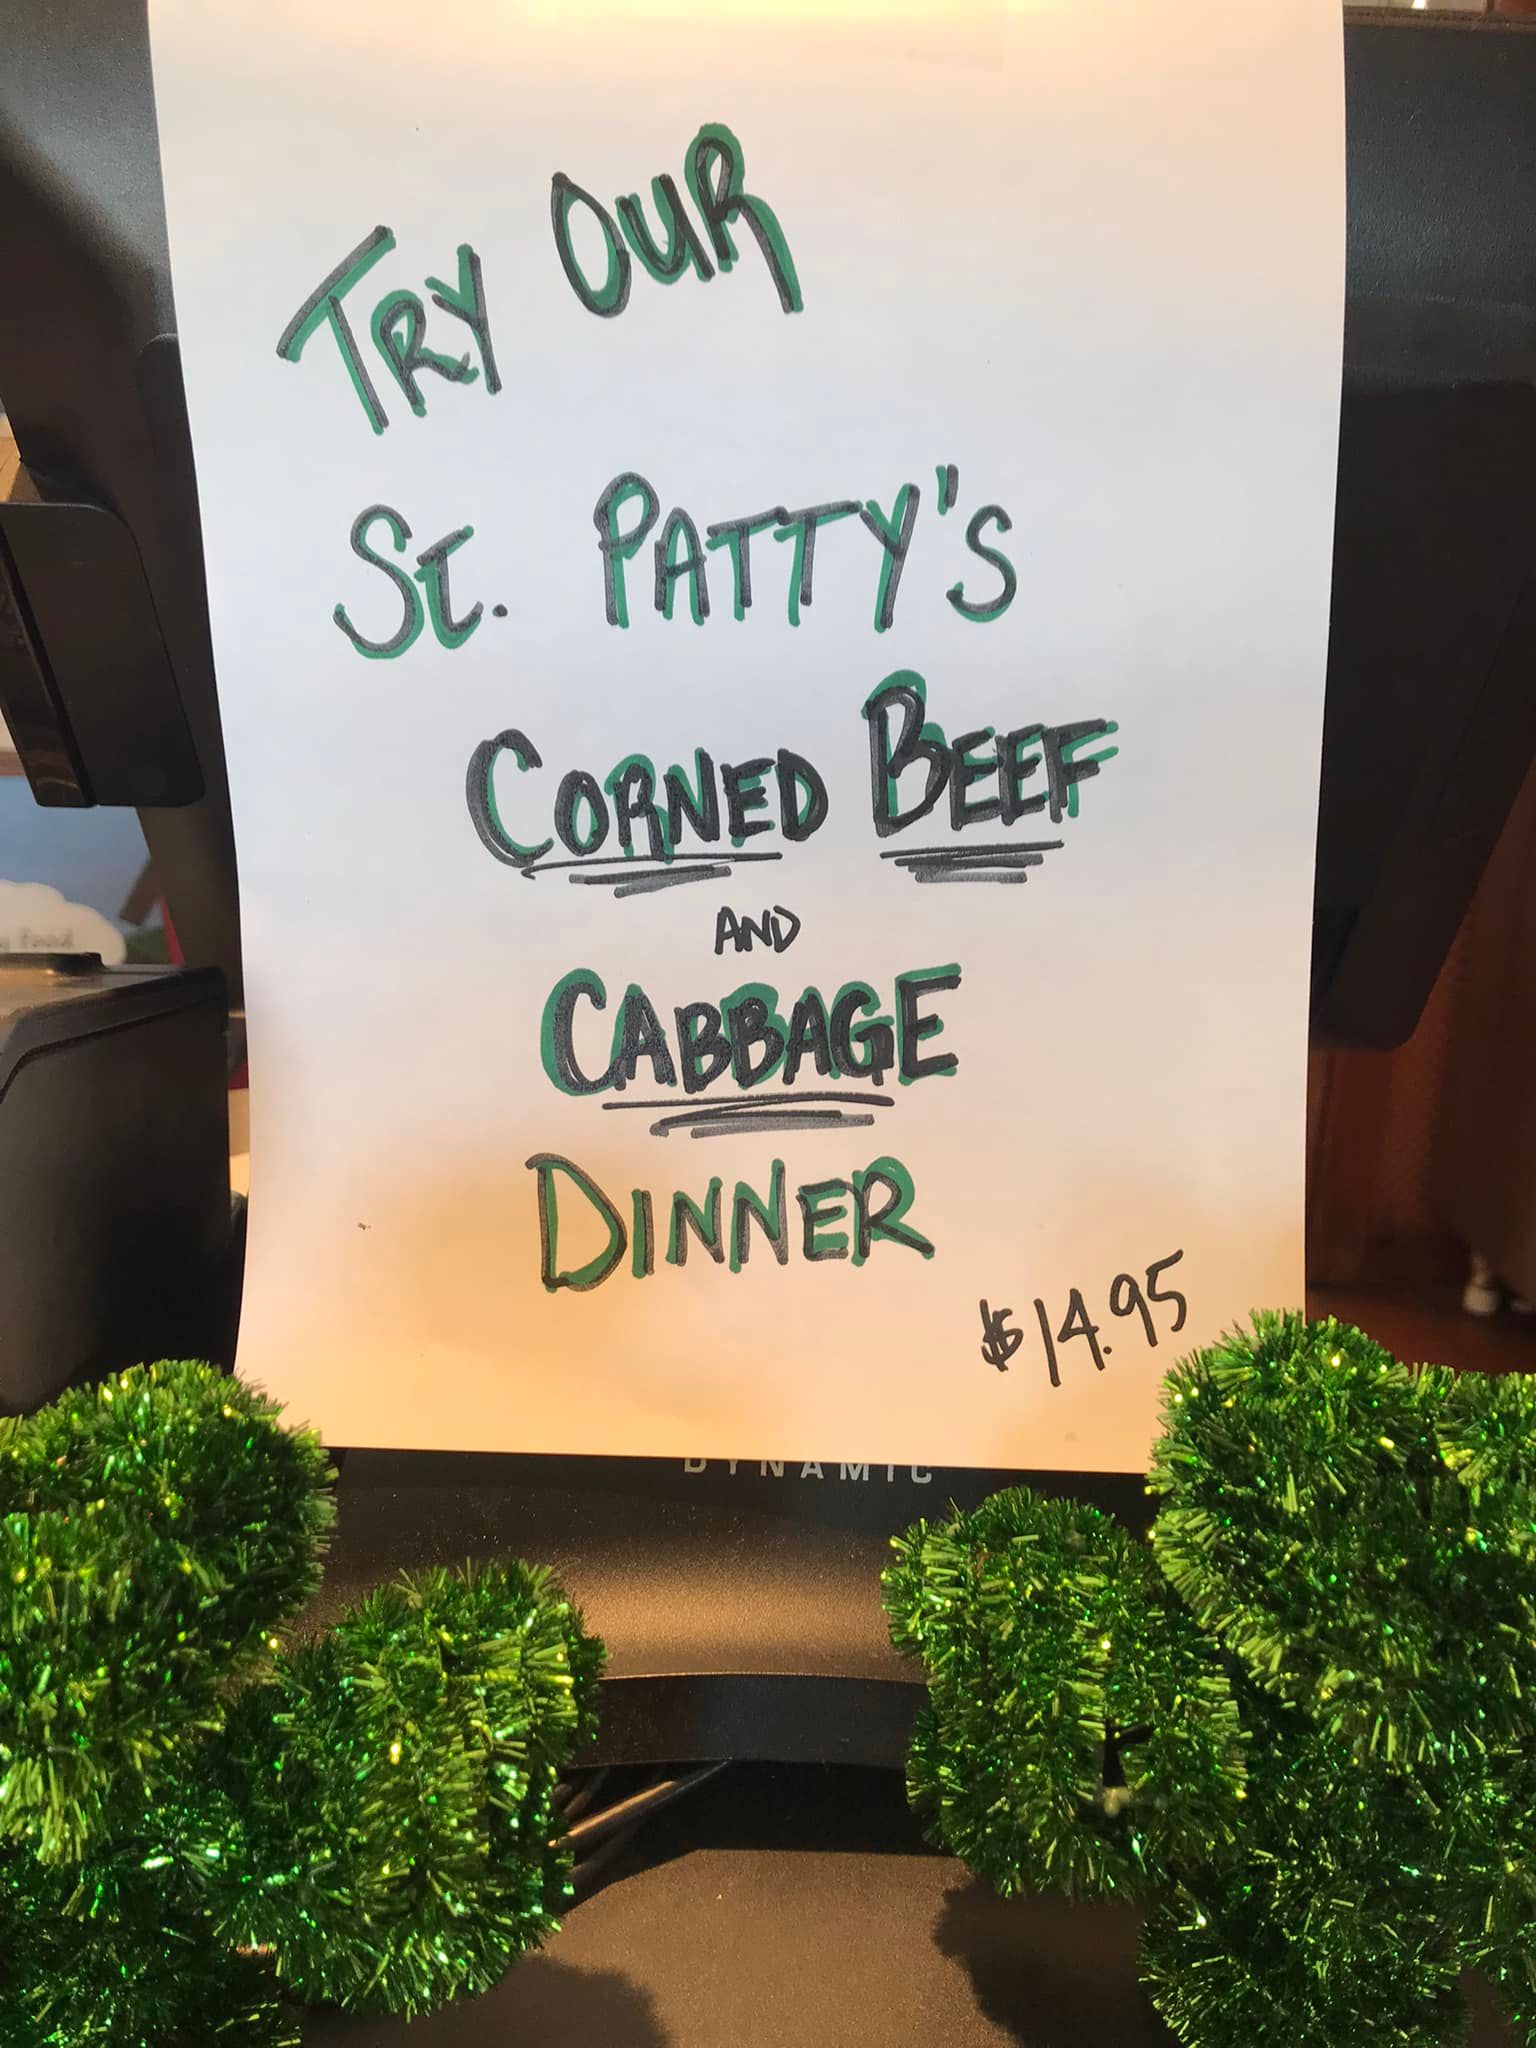 TRY OUR
St. PATTY'S
CORNED BEEF
AND
CABBAGE
DINNER
$14.95
DYNAMIC
food